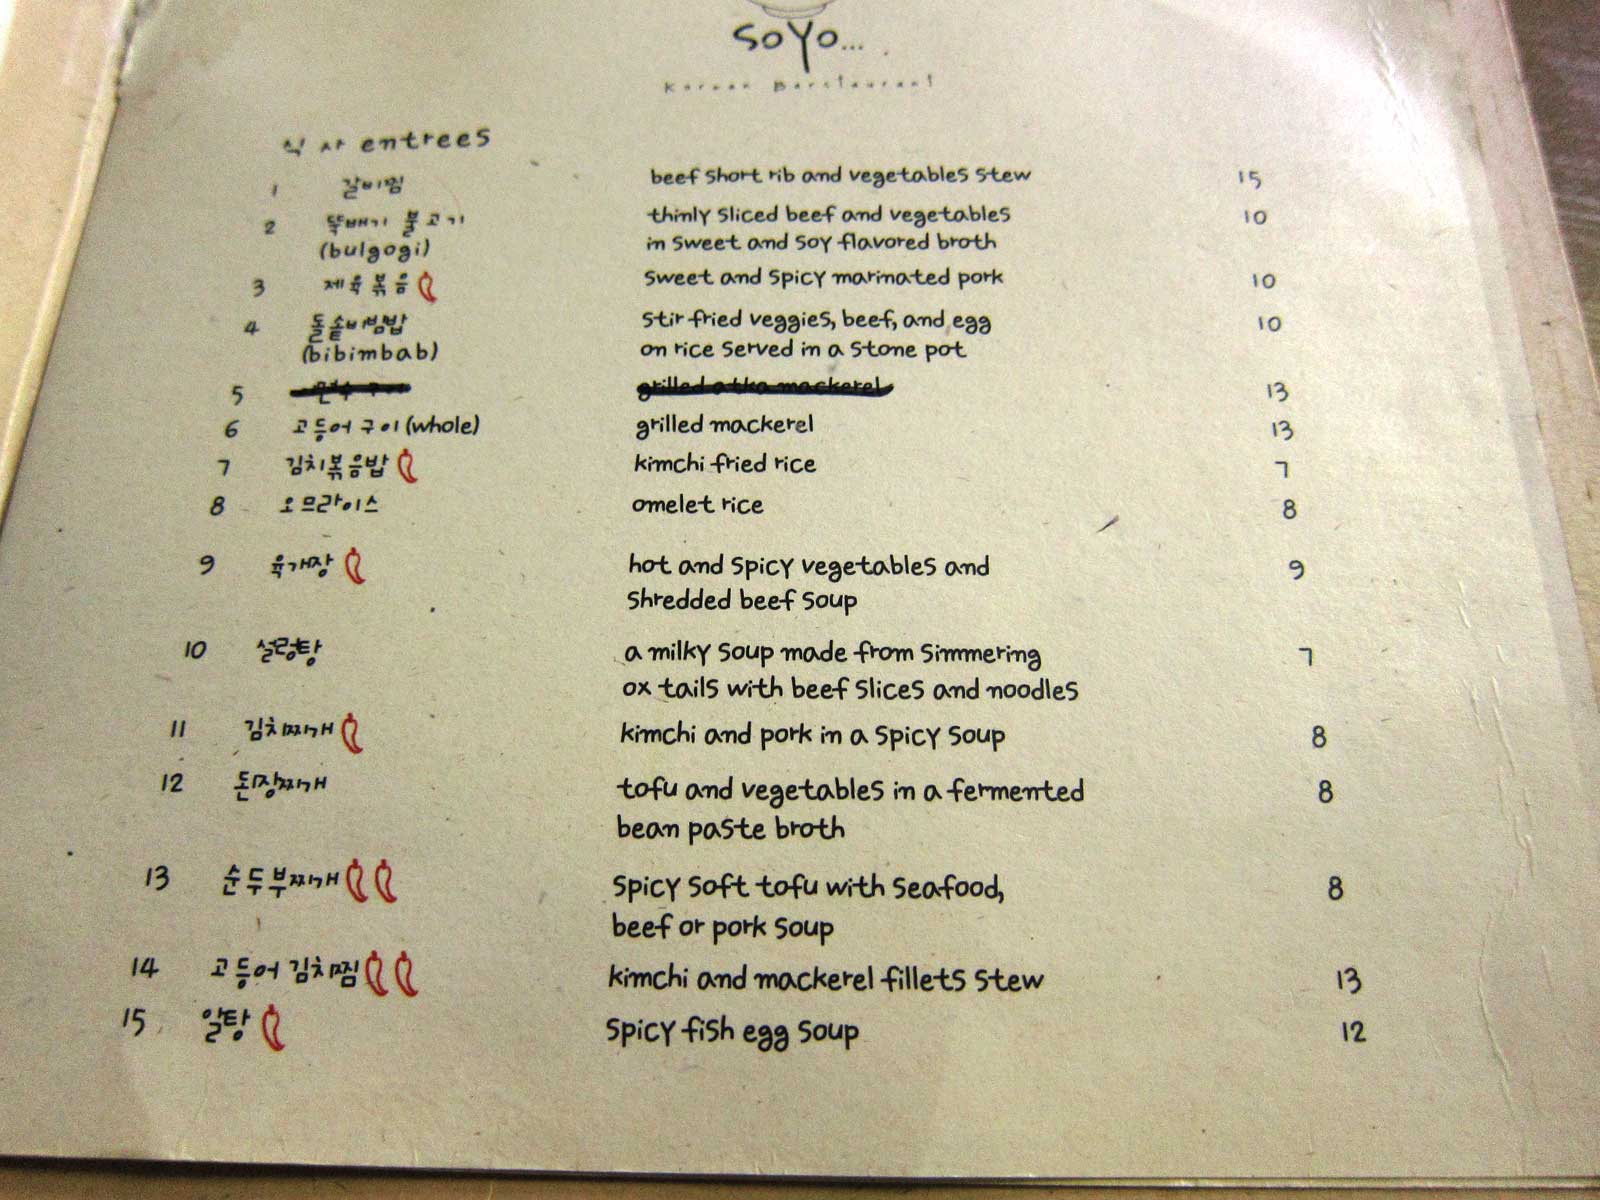 soyo...
Korean Barstaurant
식사 entrees
1 갈비찜 beef short rib and vegetables stew 15
2 뚝배기 불고기 thinly sliced beef and vegetables 10
(bulgogi) in sweet and soy flavored broth
3 제육볶음 sweet and spicy marinated pork 10
4 돌솥비빔밥 stir fried veggies, beef, and egg 10
(bibimbab) on rice served in a stone pot
5 grilled atka mackerel 13
6 고등어구이 (whole) grilled mackerel 13
7 김치볶음밥 kimchi fried rice 7
8 오므라이스 omelet rice 8
9 육개장 hot and spicy vegetables and 9
shredded beef soup
10 설렁탕 a milky soup made from simmering 7
ox tails with beef slices and noodles
11 김치찌개 kimchi and pork in a spicy soup 8
12 된장찌개 tofu and vegetables in a fermented 8
bean paste broth
13 순두부찌개 spicy soft tofu with seafood, 8
beef or pork soup
14 고등어 김치찜 kimchi and mackerel fillets stew 13
15 알탕 spicy fish egg soup 12